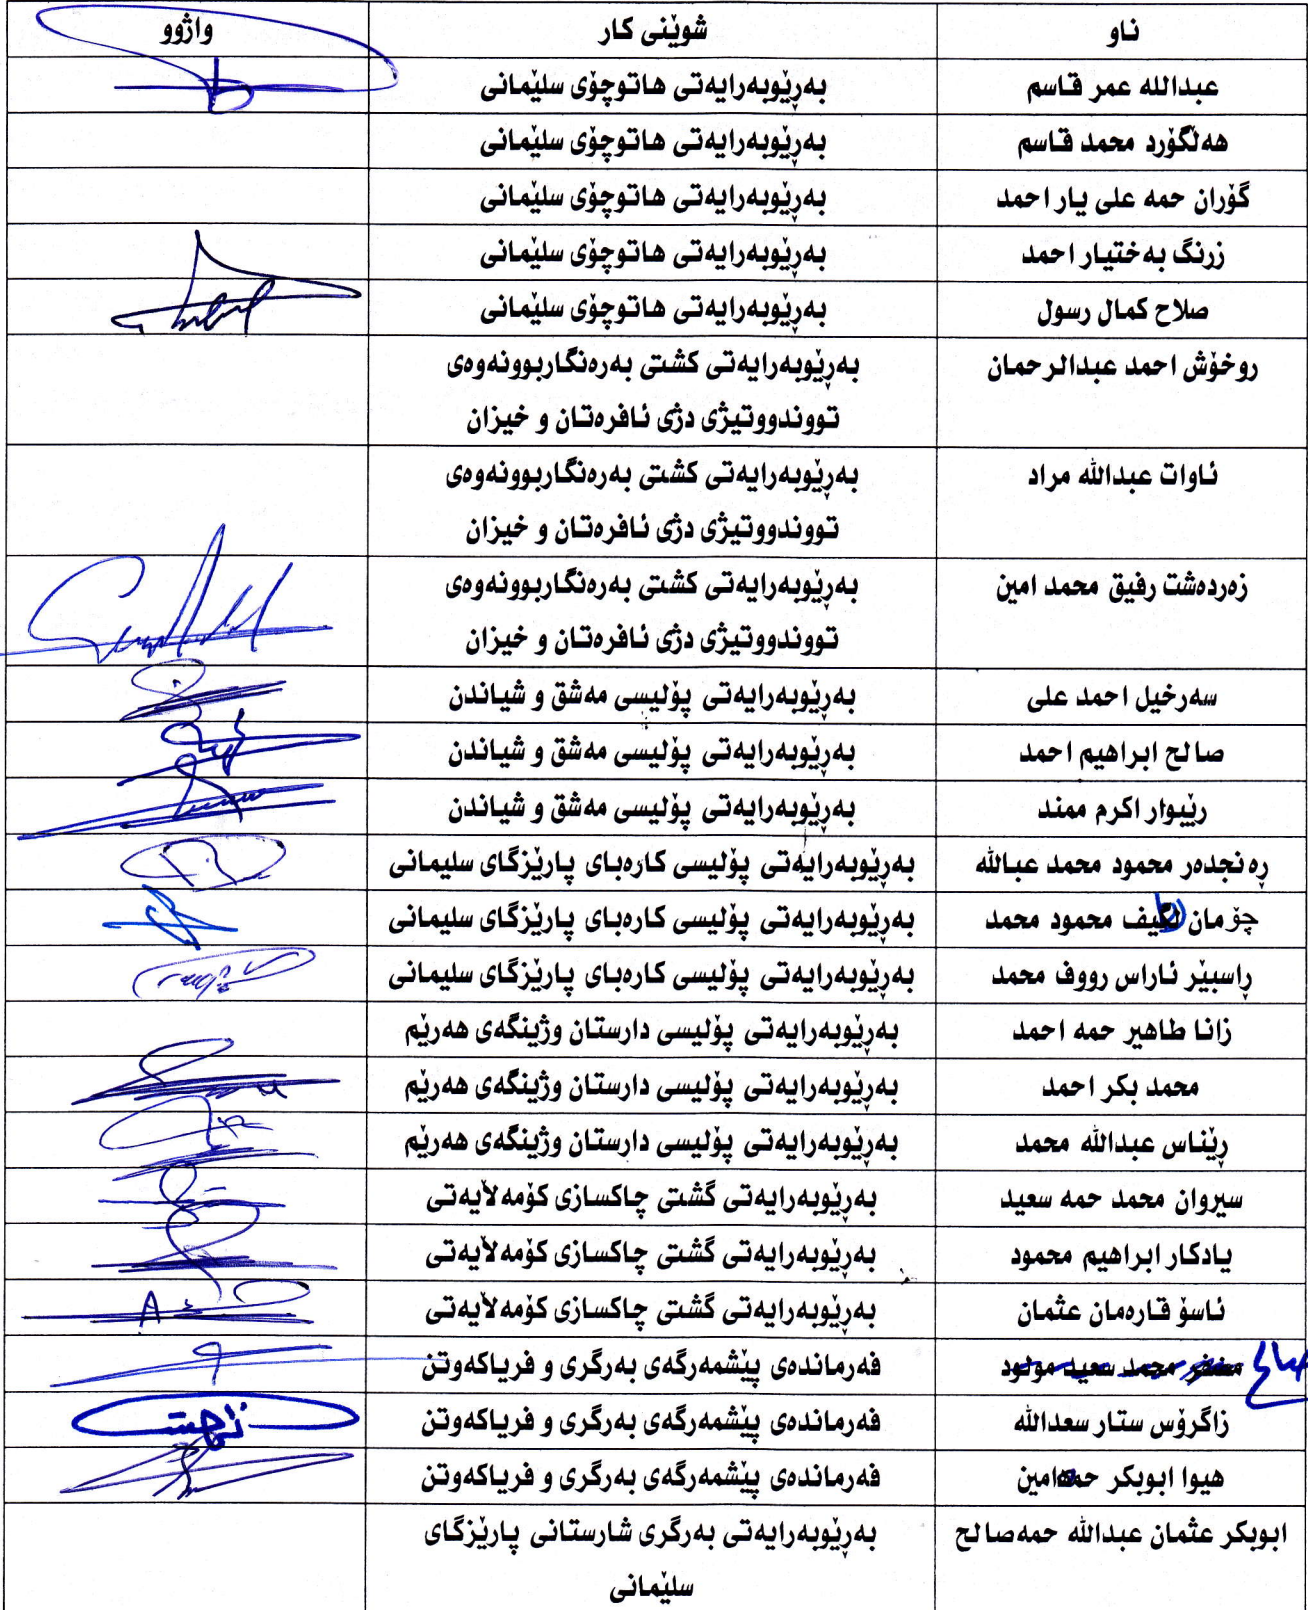 ناو شوێنی کار واژوو
عبدالله عمر قاسم بەڕێوبەرایەتی هاتوچۆی سلێمانی
هەڵگۆرد محمد قاسم بەڕێوبەرایەتی هاتوچۆی سلێمانی
گۆران حمه علی یار احمد بەڕێوبەرایەتی هاتوچۆی سلێمانی
زرنگ بەختیار احمد بەڕێوبەرایەتی هاتوچۆی سلێمانی
صلاح کمال رسول بەڕێوبەرایەتی هاتوچۆی سلێمانی
روخۆش احمد عبدالرحمان بەڕێوبەرایەتی کشتی بەرەنگاربوونەوەی
تووندووتیژی دژی ئافرەتان و خیزان
ئاوات عبدالله مراد بەڕێوبەرایەتی کشتی بەرەنگاربوونەوەی
تووندووتیژی دژی ئافرەتان و خیزان
زەردەشت رفیق محمد امین بەڕێوبەرایەتی کشتی بەرەنگاربوونەوەی
تووندووتیژی دژی ئافرەتان و خیزان
سەرخیل احمد علی بەڕێوبەرایەتی پۆلیسی مەشق و شیاندن
صالح ابراهیم احمد بەڕێوبەرایەتی پۆلیسی مەشق و شیاندن
رێبوار اکرم ممند بەڕێوبەرایەتی پۆلیسی مەشق و شیاندن
ڕەنجدەر محمود محمد عبالله بەڕێوبەرایەتی پۆلیسی کارەبای پارێزگای سلیمانی
چۆمان محمود محمد بەڕێوبەرایەتی پۆلیسی کارەبای پارێزگای سلیمانی
ڕاسبێر ئاراس رووف محمد بەڕێوبەرایەتی پۆلیسی کارەبای پارێزگای سلیمانی
زانا طاهیر حمه احمد بەڕێوبەرایەتی پۆلیسی دارستان وژینگەی هەرێم
محمد بکر احمد بەڕێوبەرایەتی پۆلیسی دارستان وژینگەی هەرێم
ڕێناس عبدالله محمد بەڕێوبەرایەتی پۆلیسی دارستان وژینگەی هەرێم
سیروان محمد حمه سعید بەڕێوبەرایەتی گشتی چاکسازی کۆمەڵایەتی
یادکار ابراهیم محمود بەڕێوبەرایەتی گشتی چاکسازی کۆمەڵایەتی
ئاسۆ قارەمان عثمان بەڕێوبەرایەتی گشتی چاکسازی کۆمەڵایەتی
محمد سعید مولود فەرماندەی پێشمەرگەی بەرگری و فریاکەوتن
زاگرۆس ستار سعدالله فەرماندەی پێشمەرگەی بەرگری و فریاکەوتن
هیوا ابوبکر حمەامین فەرماندەی پێشمەرگەی بەرگری و فریاکەوتن
ابوبکر عثمان عبدالله حمەصالح بەڕێوبەرایەتی بەرگری شارستانی پارێزگای
سلێمانی